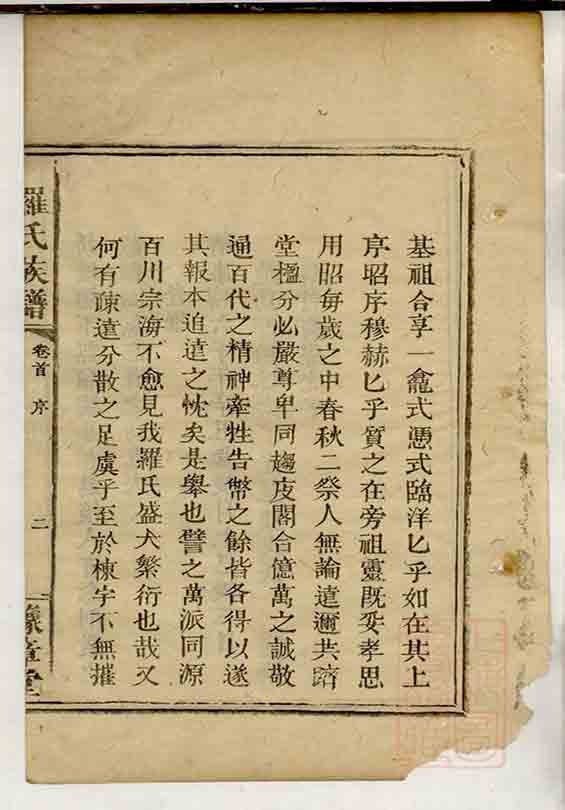 基祖合享一龕式憑式臨洋匕乎如在其上
序昭序穆赫匕乎質之在旁祖靈既妥孝思
用昭每歲之中春秋二祭人無論遠邇共躋
堂楹分必嚴尊卑同趨庋閣合億萬之誠敬
通百代之精神牽牲告幣之餘皆各得以遂
其報本追遠之忱矣是舉也譬之萬派同源
百川宗海不愈見我羅氏盛大繁衍也哉又
何有疎遠分散之足虞乎至於棟宇不無摧
羅氏族譜
卷首 序
二
豫章堂